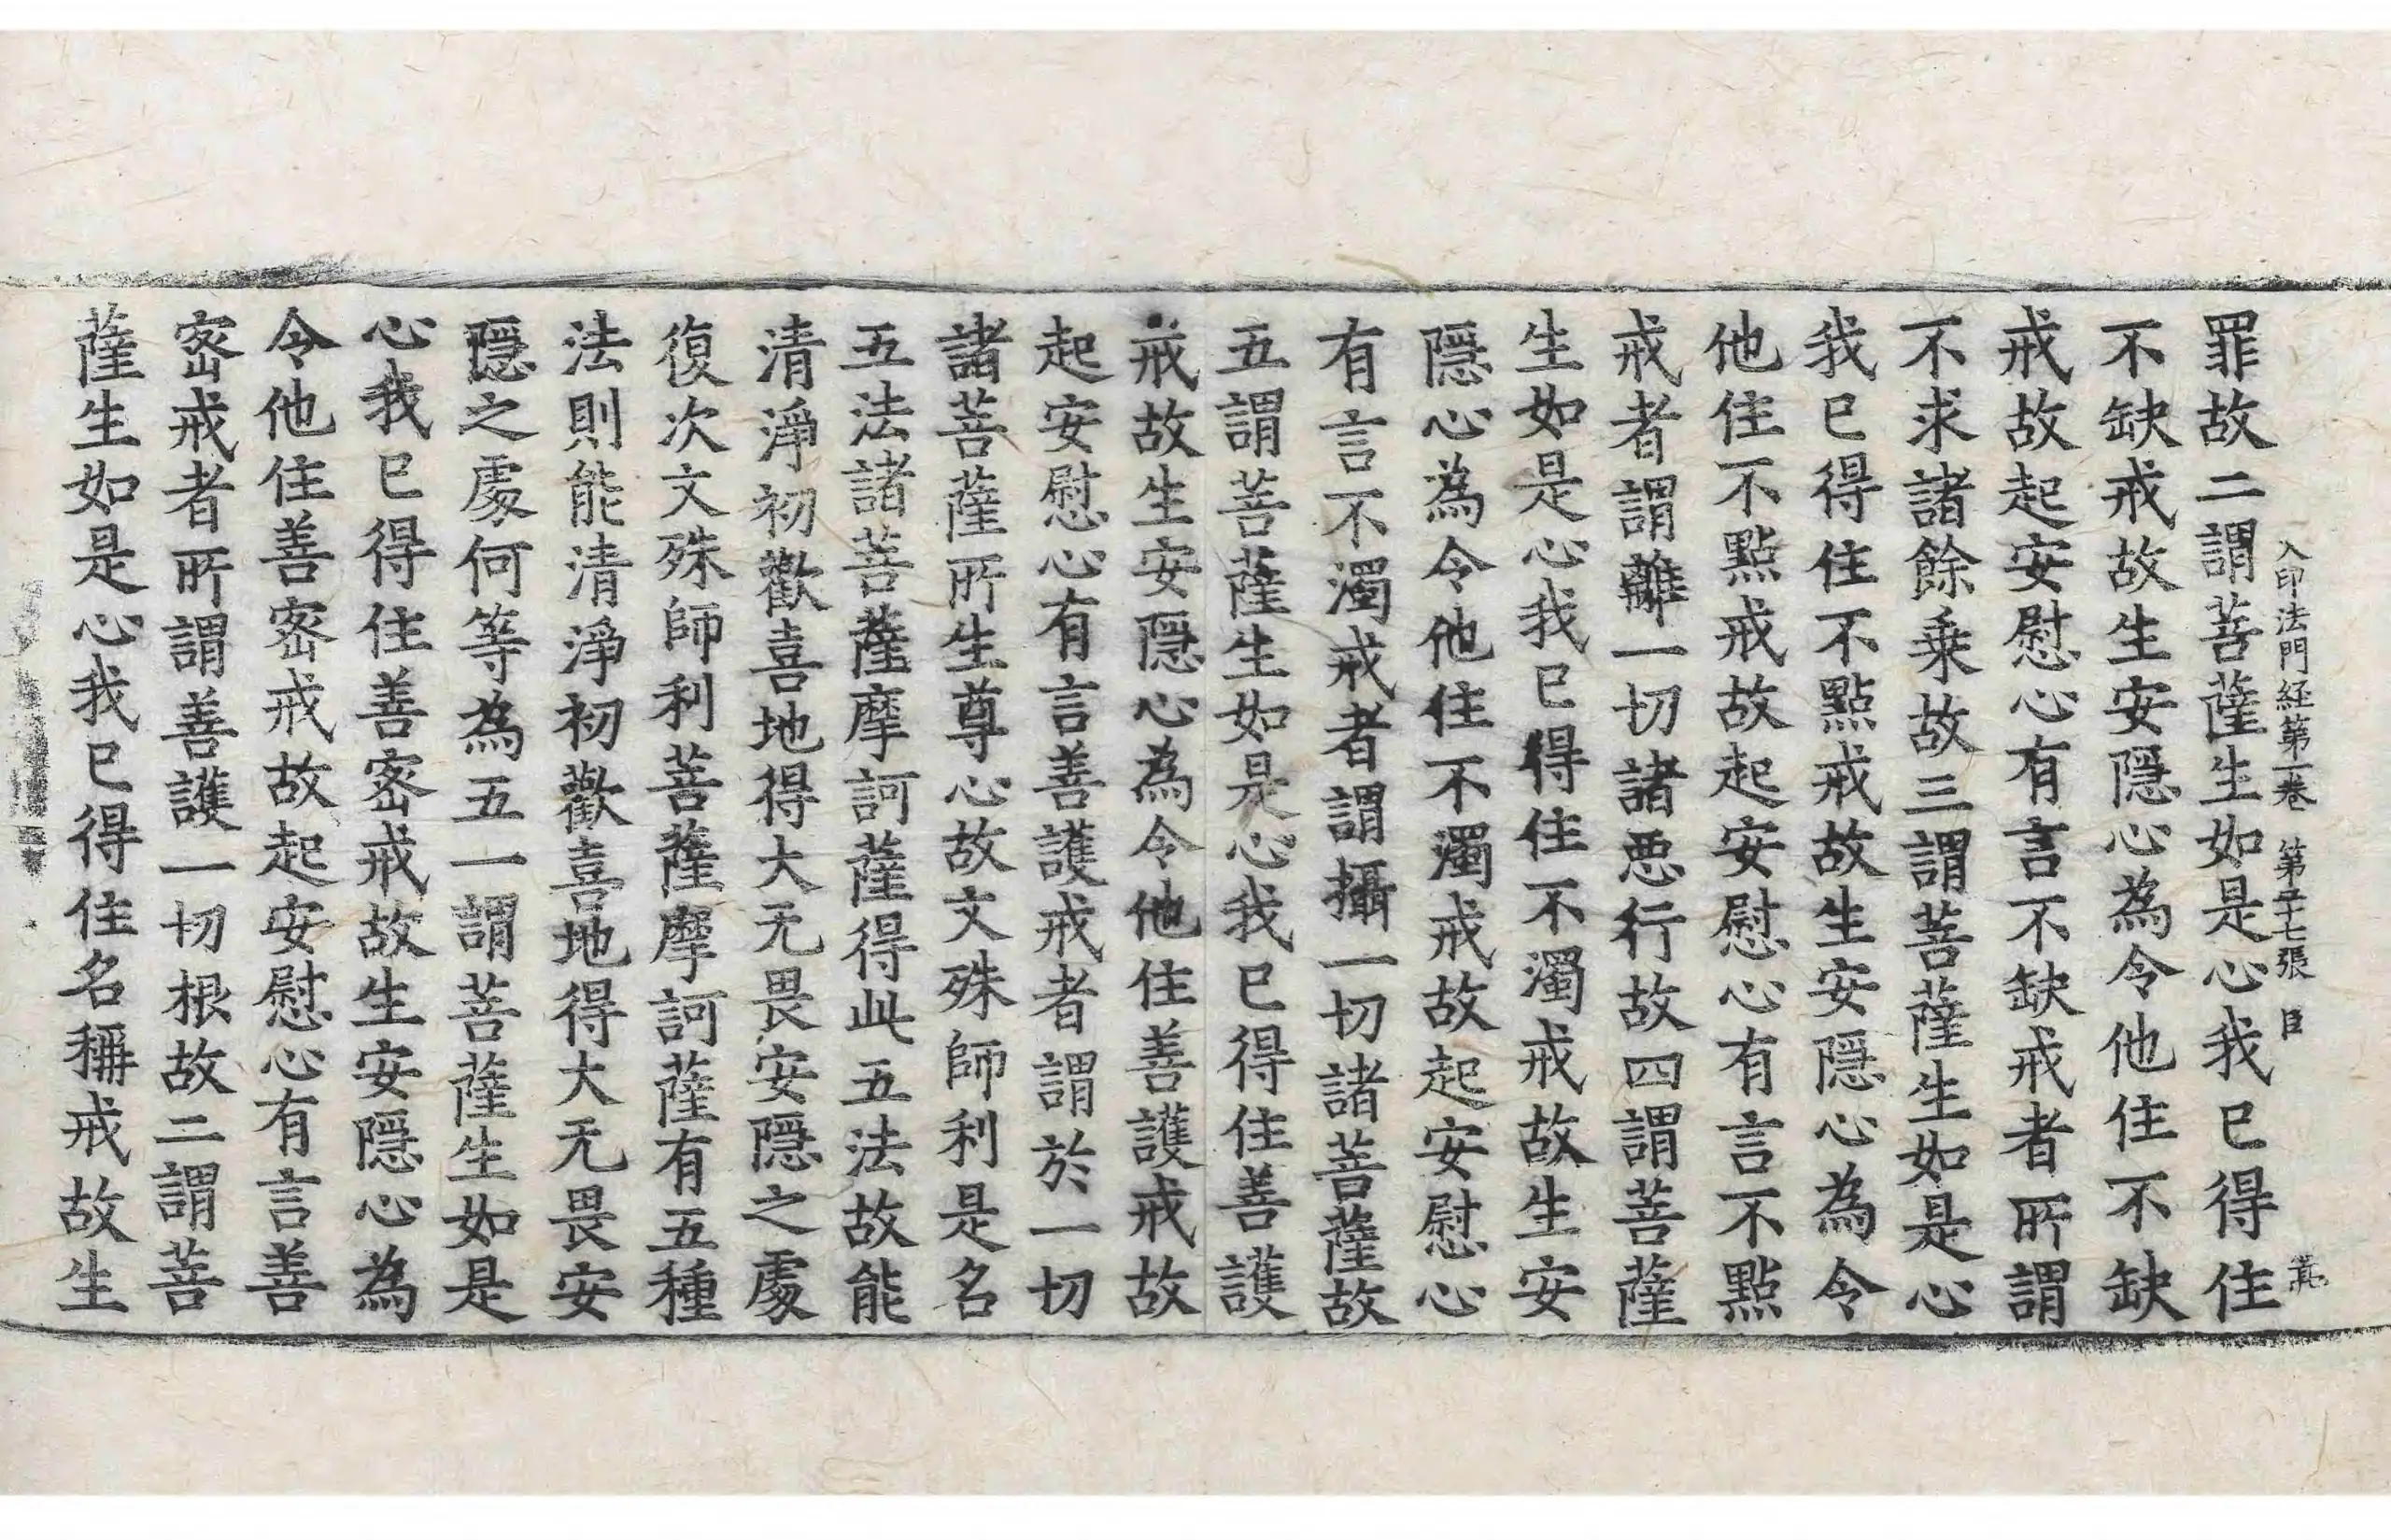 入印法門経第一卷 第二十七張 臣
罪故二謂菩薩生如是心我已得住
不缺戒故生安隱心為令他住不缺
戒故起安慰心有言不缺戒者所謂
不求諸餘乗故三謂菩薩生如是心
我已得住不點戒故生安隱心為令
他住不點戒故起安慰心有言不點
戒者謂離一切諸悪行故四謂菩薩
生如是心我已得住不濁戒故生安
隱心為令他住不濁戒故起安慰心
有言不濁戒者謂攝一切諸菩薩故
五謂菩薩生如是心我已得住善護
戒故生安隱心為令他住善護戒故
起安慰心有言善護戒者謂於一切
諸菩薩所生尊心故文殊師利是名
五法諸菩薩摩訶薩得此五法故能
清淨初歡喜地得大无畏安隱之處
復次文殊師利菩薩摩訶薩有五種
法則能清淨初歡喜地得大无畏安
隱之處何等為五一謂菩薩生如是
心我已得住善宻戒故生安隱心為
令他住善宻戒故起安慰心有言善
宻戒者所謂善護一切根故二謂菩
薩生如是心我已得住名稱戒故生